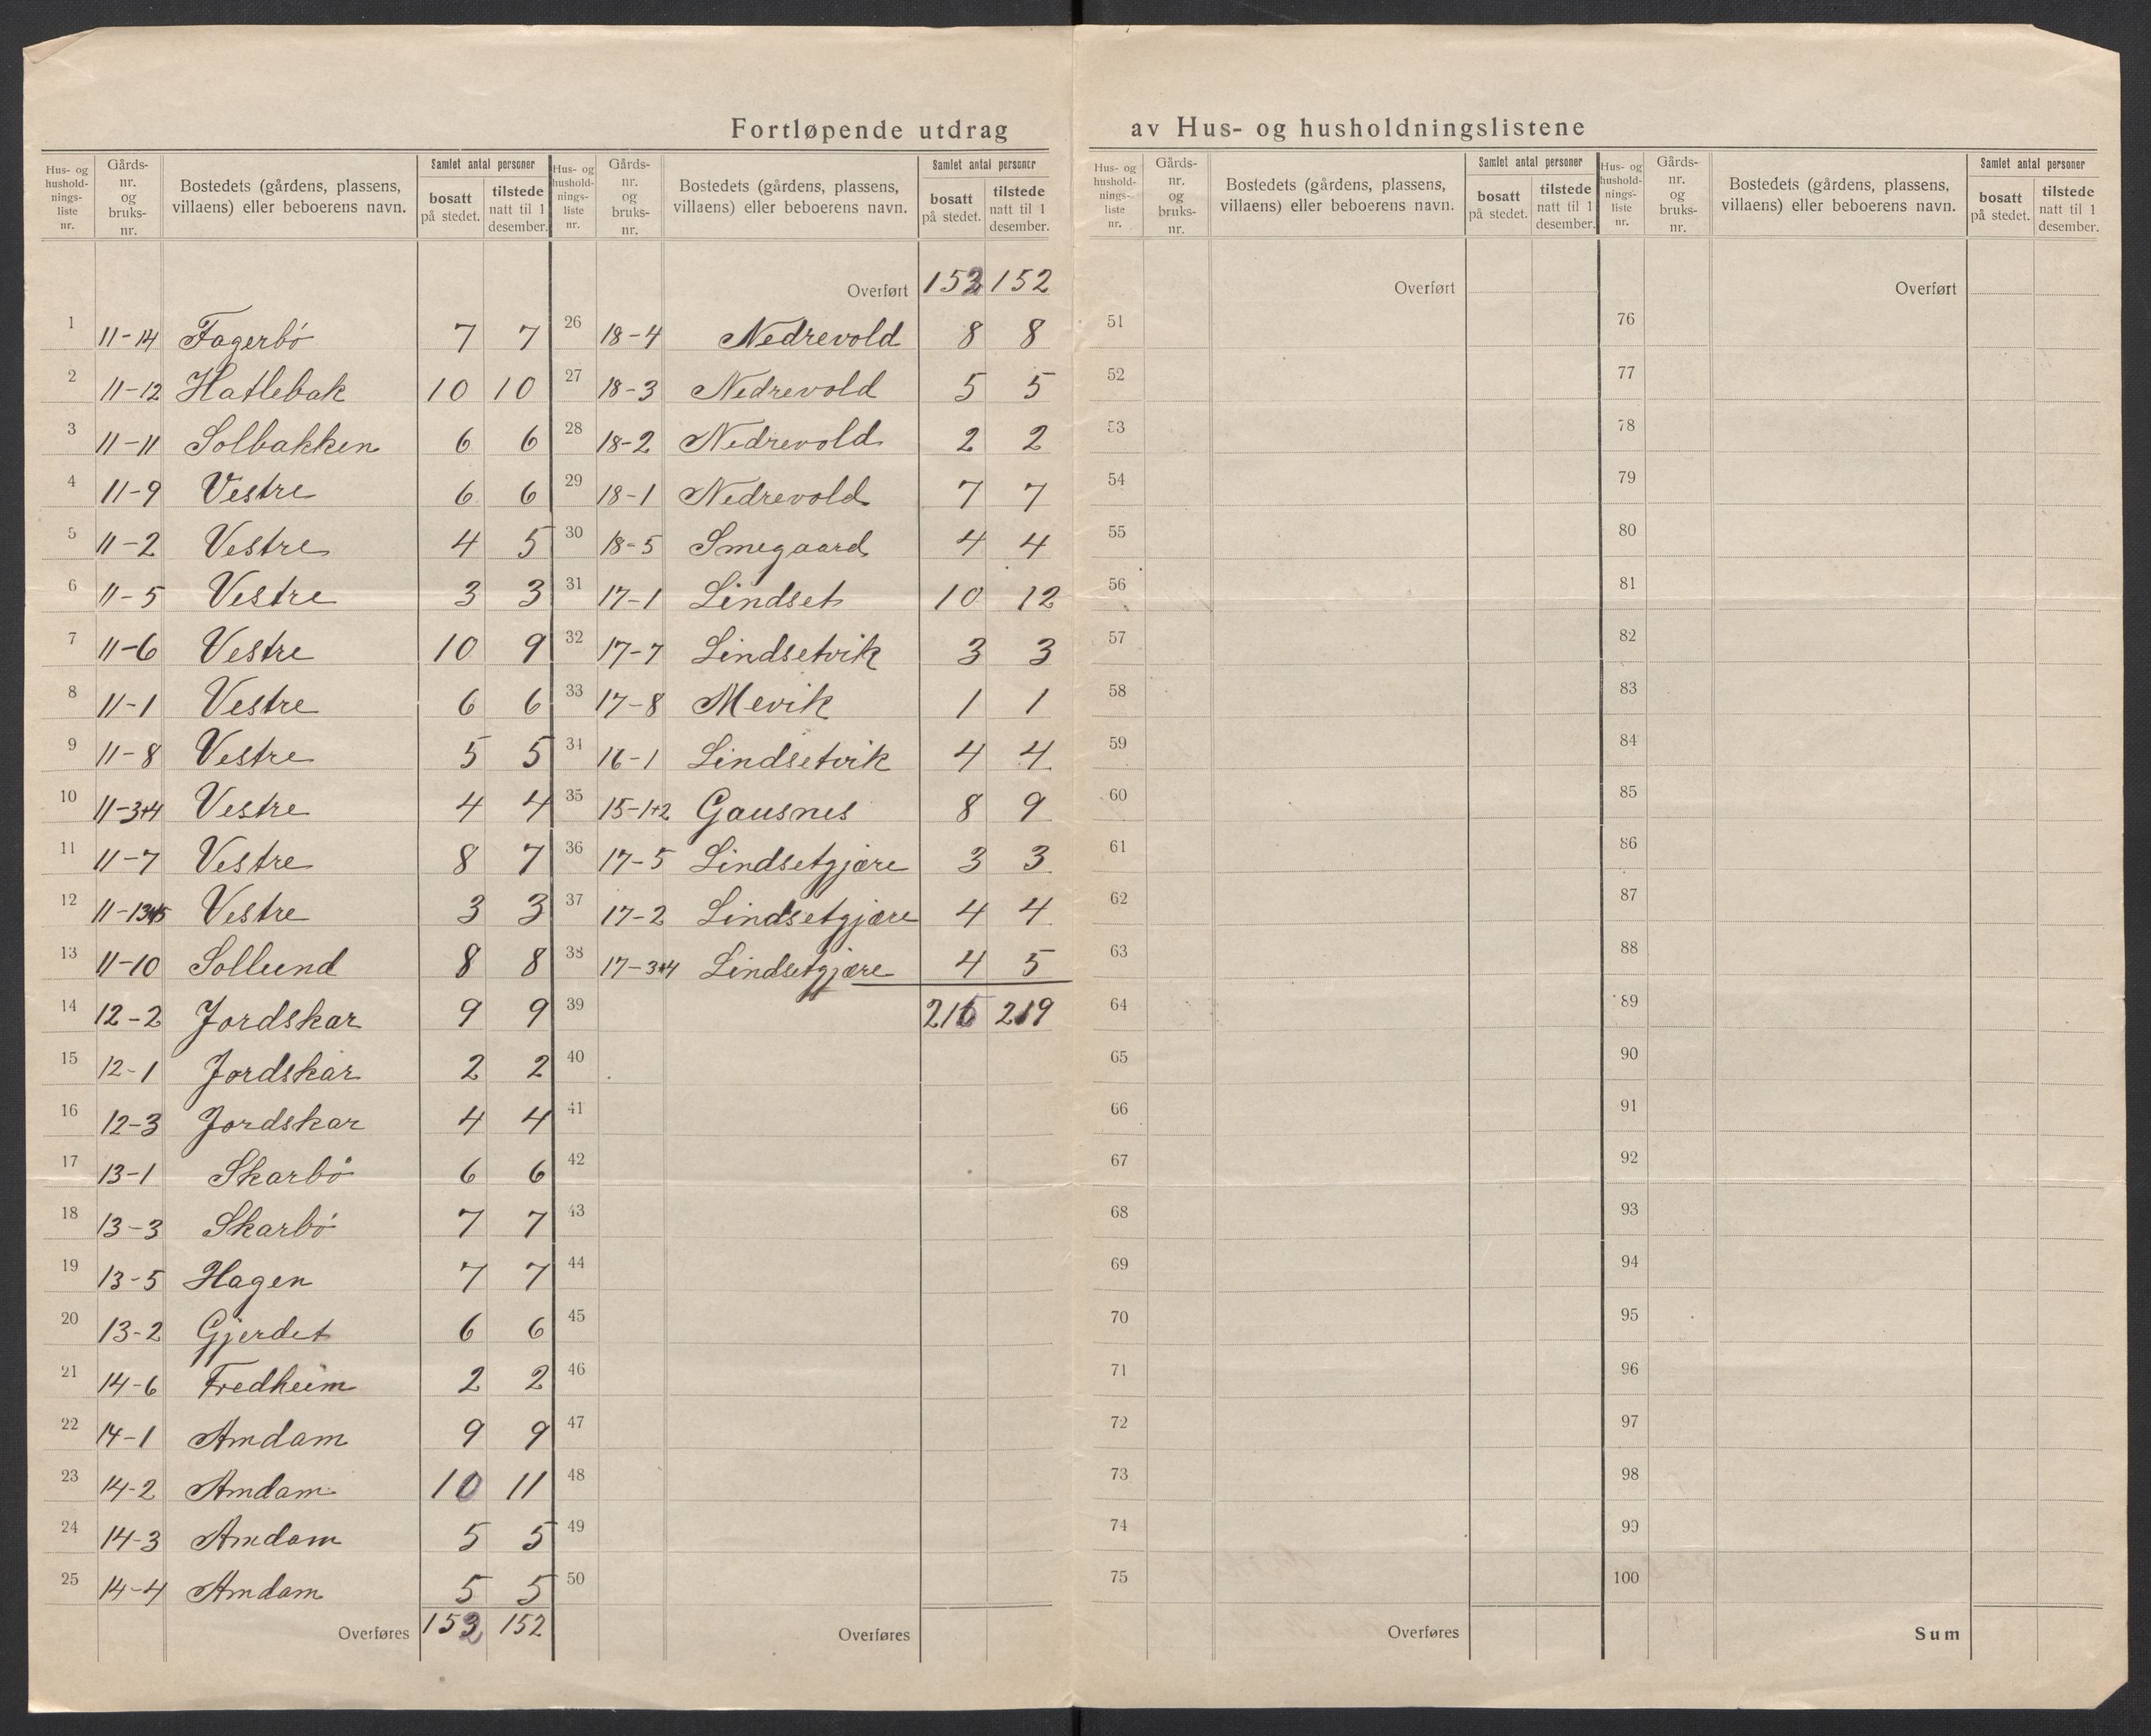 Fortløpende utdrag av Hus- og husholdningslistene
Hus- og hushold-nings-liste nr. Gårds-nr. og bruks-nr. Bostedets (gårdens, plassens, villaens) eller beboerens navn. Samlet antal personer bosatt på stedet. tilstede natt til 1 desember.
1 11-14 Fagerbö 7 7
2 11-12 Hatlebak 10 10
3 11-11 Solbakken 6 6
4 11-9 Vestre 6 6
5 11-2 Vestre 4 5
6 11-5 Vestre 3 3
7 11-6 Vestre 10 9
8 11-1 Vestre 6 6
9 11-8 Vestre 5 5
10 11-3+4 Vestre 4 4
11 11-7 Vestre 8 7
12 11-13+15 Vestre 3 3
13 11-10 Sollund 8 8
14 12-2 Jordskar 9 9
15 12-1 Jordskar 2 2
16 12-3 Jordskar 4 4
17 13-1 Skarbö 6 6
18 13-3 Skarbö 7 7
19 13-5 Hagen 7 7
20 13-2 Gjerdet 6 6
21 14-6 Fredheim 2 2
22 14-1 Amdam 9 9
23 14-2 Amdam 10 11
24 14-3 Amdam 5 5
25 14-4 Amdam 5 5
Overføres 152 152
Hus- og hushold-nings-liste nr. Gårds-nr. og bruks-nr. Bostedets (gårdens, plassens, villaens) eller beboerens navn. Samlet antal personer bosatt på stedet. tilstede natt til 1 desember.
Overført 152 152
26 18-4 Nedrevold 8 8
27 18-3 Nedrevold 5 5
28 18-2 Nedrevold 2 2
29 18-1 Nedrevold 7 7
30 18-5 Smegaard 4 4
31 17-1 Lindset 10 12
32 17-7 Lindsetvik 3 3
33 17-8 Mevik 1 1
34 16-1 Lindsetvik 4 4
35 15-1+2 Gausnes 8 9
36 17-5 Lindsetgjære 3 3
37 17-2 Lindsetgjære 4 4
38 17-3+4 Lindsetgjære 4 5
39 215 219
40
41
42
43
44
45
46
47
48
49
50
Overføres
Hus- og hushold-nings-liste nr. Gårds-nr. og bruks-nr. Bostedets (gårdens, plassens, villaens) eller beboerens navn. Samlet antal personer bosatt på stedet. tilstede natt til 1 desember.
Overført
51
52
53
54
55
56
57
58
59
60
61
62
63
64
65
66
67
68
69
70
71
72
73
74
75
Overføres
Hus- og hushold-nings-liste nr. Gårds-nr. og bruks-nr. Bostedets (gårdens, plassens, villaens) eller beboerens navn. Samlet antal personer bosatt på stedet. tilstede natt til 1 desember.
Overført
76
77
78
79
80
81
82
83
84
85
86
87
88
89
90
91
92
93
94
95
96
97
98
99
100
Sum